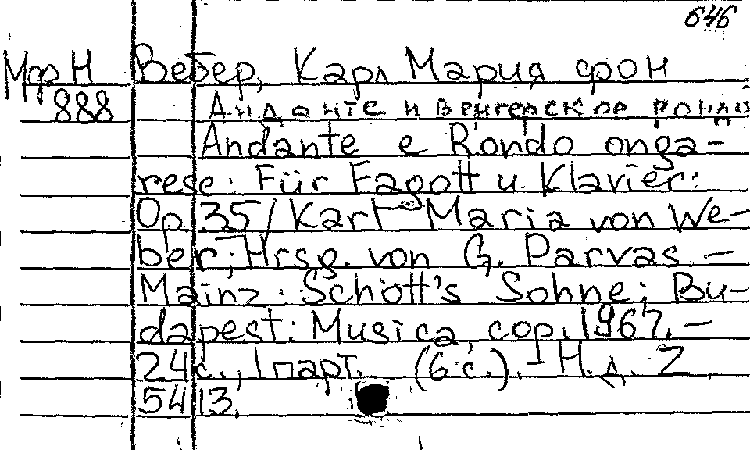 646
МфН Вебер, Карл Мария фон
888 Анданте и венгерское рондо
Andante e Rondo onga-
rese: Für Fagott u Klavier:
Op. 35 / Karl Maria von We-
ber; Hrsg. von G. Parvas. —
Mainz: Schott's Sohne; Bu-
dapest: Musica, cop. 1967. —
24 с., 1 парт. (6 с.). - Н. д. Z
5413.